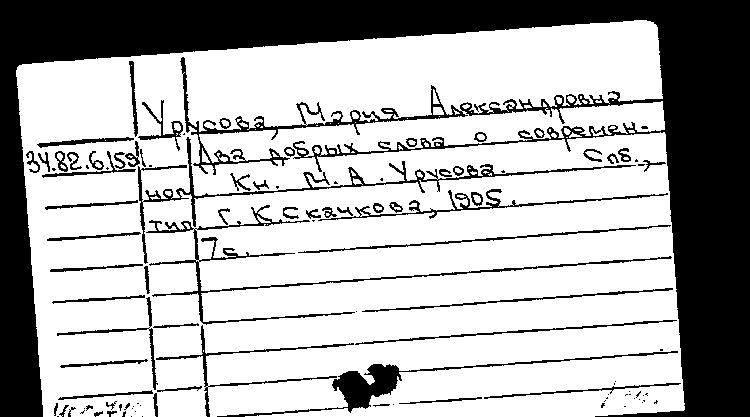 Урусова, Мария Александровна
34.82.6.159. Два добрых слова о современ-
ном. Кн. М. А. Урусова. Спб.,
тип. Г. К. Скачкова, 1905.
7 с.